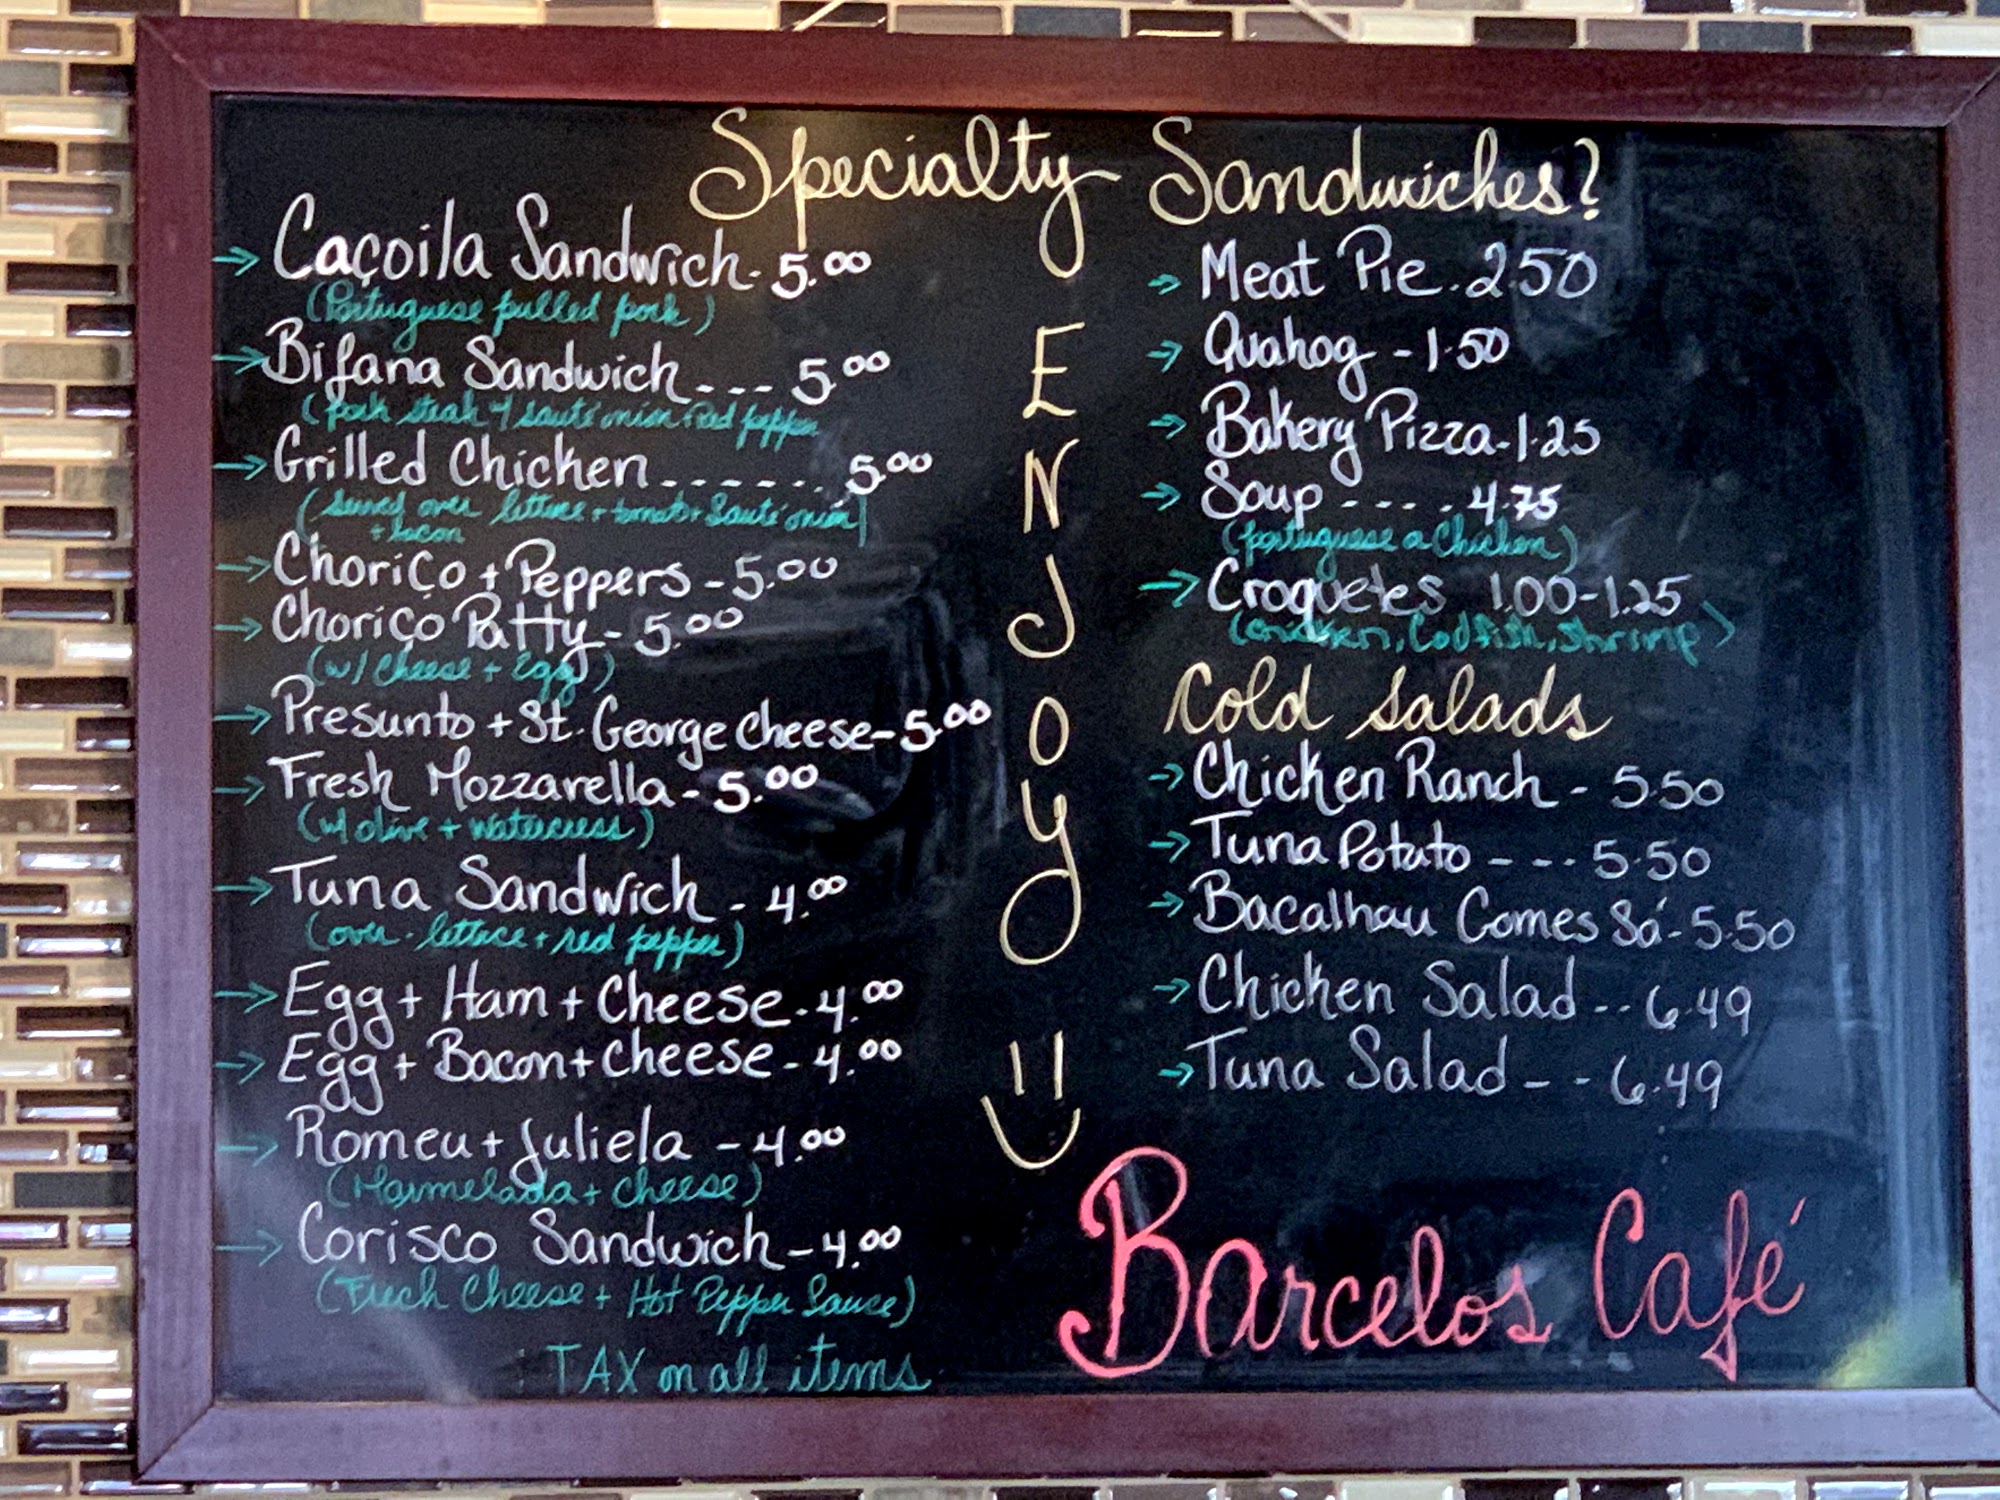 Specialty Sandwiches?
Caçoila Sandwich - 5.00
(Portuguese pulled pork)
Bifana Sandwich - - - 5.00
(Pork steak + sauté onion + Red pepper
Grilled Chicken - - - - - - - 5.00
(Served over lettuce + tomato + Sauté onion)
+ bacon
Choriço + Peppers - 5.00
Choriço Patty - 5.00
(w/ Cheese + Egg)
Presunto + St. George Cheese - 5.00
Fresh Mozzarella - 5.00
(w/ olive + watercress)
Tuna Sandwich - 4.00
(over - lettuce + red pepper)
Egg + Ham + Cheese - 4.00
Egg + Bacon + Cheese - 4.00
Romeu + Juliela - 4.00
(Marmelada + Cheese)
Corisco Sandwich - 4.00
(Fresh Cheese + Hot Pepper Sauce)
TAX on all items
ENJOY
Meat Pie - 2.50
Quahog - 1.50
Bakery Pizza - 1.25
Soup - - - - 4.75
(Portuguese a Chicken)
Croquetes 1.00-1.25
(Chicken, Codfish, Shrimp)
Cold Salads
Chicken Ranch - 5.50
Tuna Potato - - - 5.50
Bacalhau Gomes Sá - 5.50
Chicken Salad - - 6.49
Tuna Salad - - 6.49
Barcelos Café